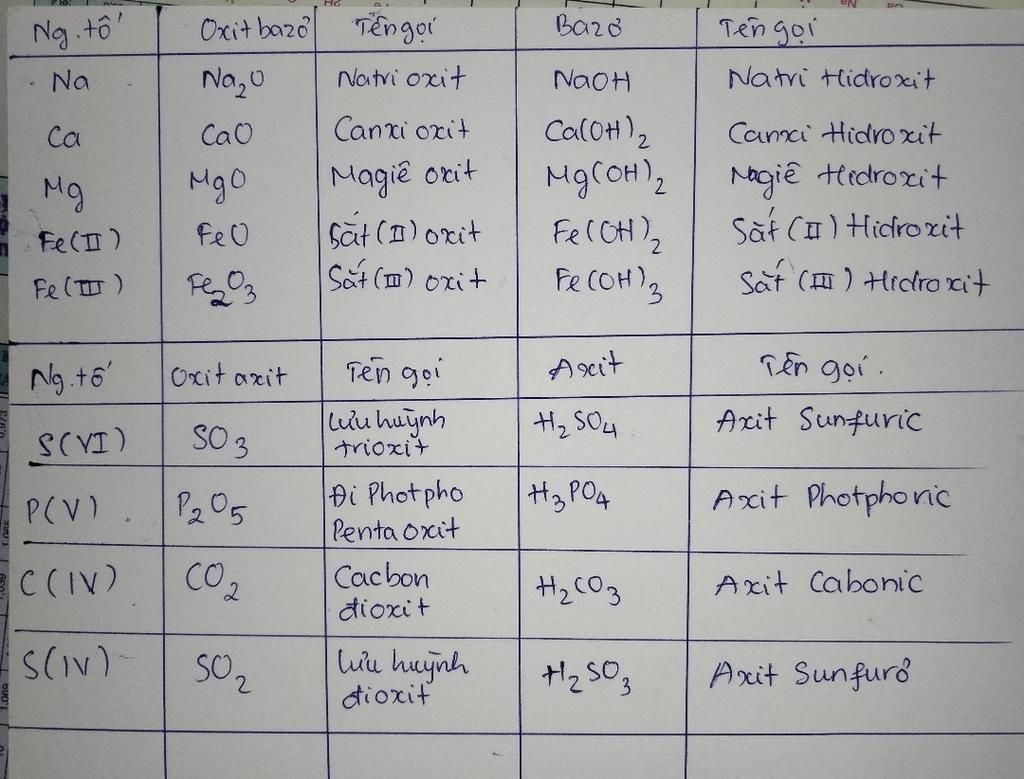 Ng.tố Oxit bazơ Tên gọi Bazơ Tên gọi
Na Na2O Natri oxit NaOH Natri Hidroxit
Ca CaO Canxi oxit Ca(OH)2 Canxi Hidroxit
Mg MgO Magiê oxit Mg(OH)2 Magiê Hidroxit
Fe(II) FeO Sắt (II) oxit Fe(OH)2 Sắt (II) Hidroxit
Fe(III) Fe2O3 Sắt (III) oxit Fe(OH)3 Sắt (III) Hidroxit
Ng.tố Oxit axit Tên gọi Axit Tên gọi.
S(VI) SO3 Lưu huỳnh trioxit H2SO4 Axit Sunfuric
P(V) P2O5 Đi Photpho Penta oxit H3PO4 Axit Photphoric
C(IV) CO2 Cacbon đioxit H2CO3 Axit Cabonic
S(IV) SO2 Lưu huỳnh đioxit H2SO3 Axit Sunfurơ